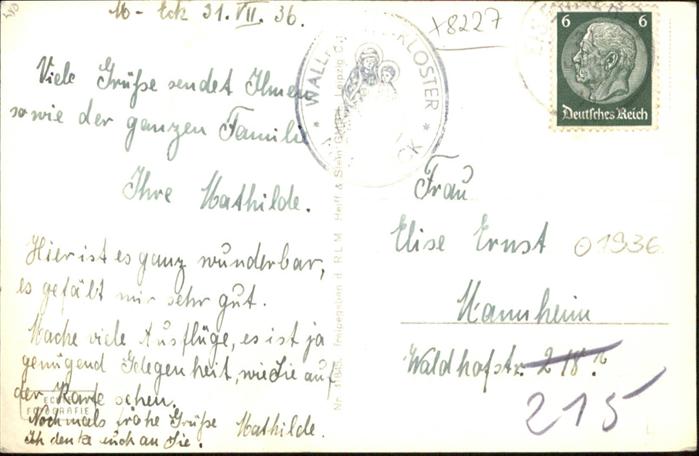 M-Eck 31.VII.36.
x8227
Viele Grüße sendet Ihnen
sowie der ganzen Familie
Ihre Mathilde.
Hier ist es ganz wunderbar,
es gefällt mir sehr gut.
Mache viele Ausflüge, es ist ja
genügend Gelegenheit, wie Sie auf
der Karte sehen.
Nochmals frohe Grüße
ich denke auch an Sie. Mathilde.
KLOSTER
6 6
Deutsches Reich
Frau
Elise Ernst
01936
Mannheim
Waldhofstr. 218
215
FOTOGRAFIE
Freigegeben d. RLM
Leipzig